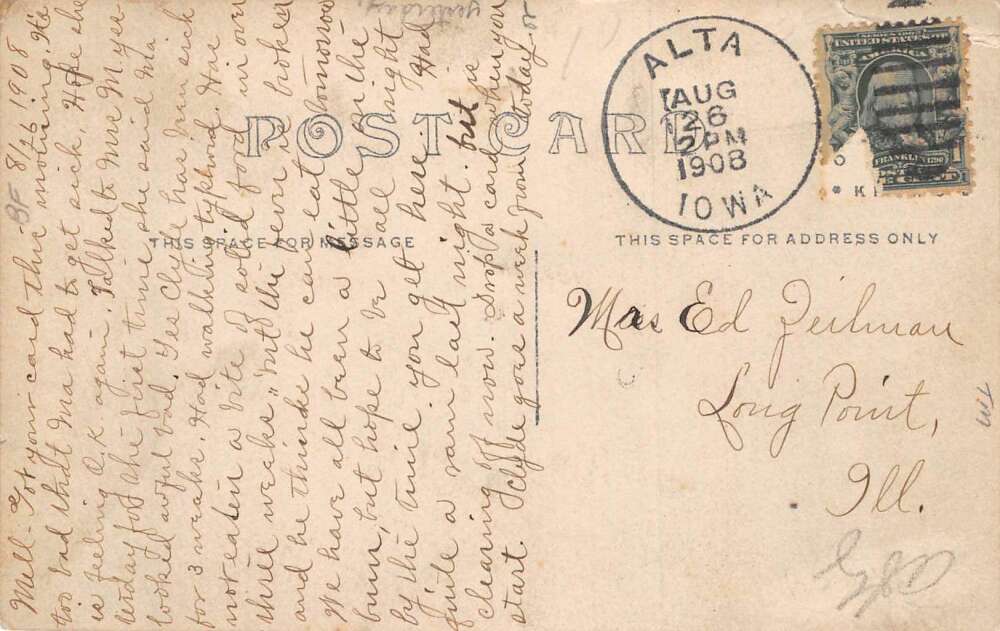 8/26 1908
Mell - Got your card this morning. It's
too bad that Ma had to get sick. Hope she
is feeling O.K again. Talked to Mrs Myer
yesterday for the first time she said Ma
looked awful bad. Yes Clyde has been sick
for 3 weaks. Had walking typhoid. Has
not eaten a bite of solid food in over
three weaks, but the fever is broken
and he thinks he can eat tomorrow
We have all been a little on the
bum, but hope to be all right
by the time you get here. Had
quite a rain last night but is
clearing off now. Drop a card when you
start. Clyde goes a week from today or
yesterday,
BF
POST CARD
THIS SPACE FOR MESSAGE
ALTA
AUG
26
2 PM
1908
IOWA
SERIES 1902
UNITED STATES OF
AMERICA
FRANKLIN 1790
1
THIS SPACE FOR ADDRESS ONLY
Mrs Ed Zeilman
Long Point,
Ill.